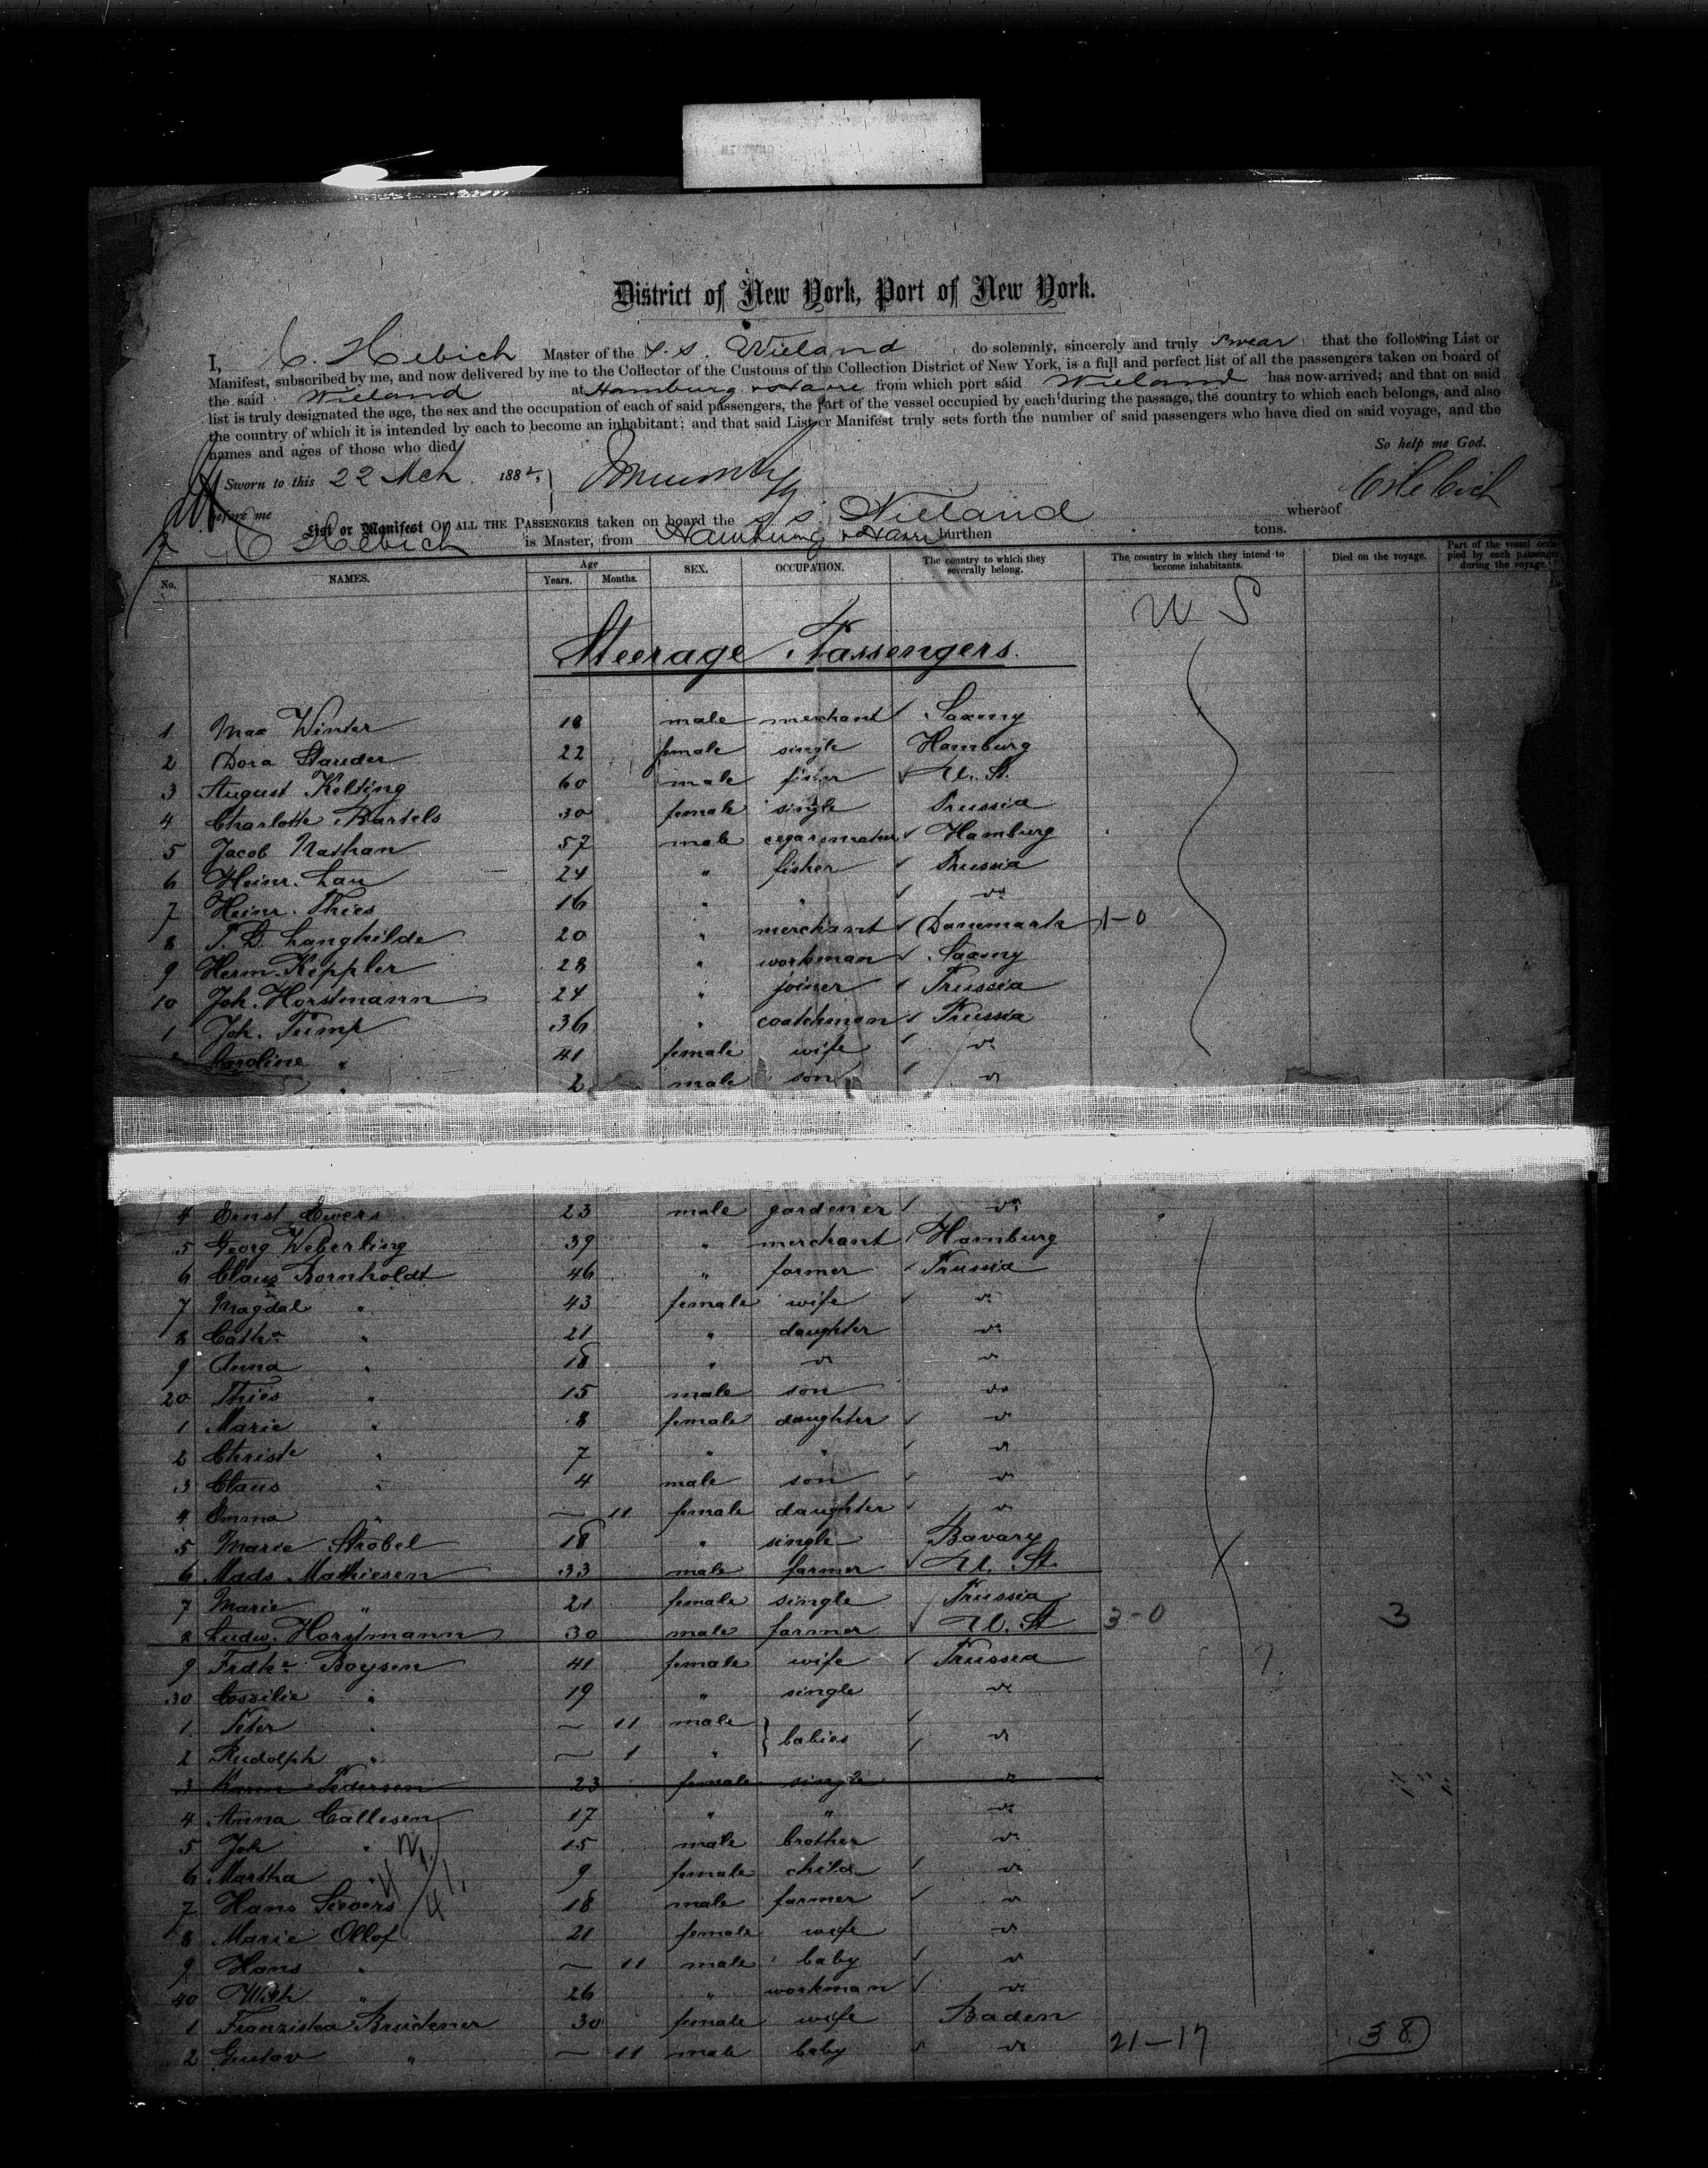 District of New York, Port of New York.
I, C. Hebich Master of the S. S. Wieland do solemnly, sincerely and truly swear that the following List or
Manifest, subscribed by me, and now delivered by me to the Collector of the Customs of the Collection District of New York, is a full and perfect list of all the passengers taken on board of
the said Wieland at Hamburg & Havre from which port said Wieland has now arrived; and that on said
list is truly designated the age, the sex and the occupation of each of said passengers, the part of the vessel occupied by each during the passage, the country to which each belongs, and also
the country of which it is intended by each to become an inhabitant; and that said List or Manifest truly sets forth the number of said passengers who have died on said voyage, and the
names and ages of those who died.
So help me God.
Sworn to this 22 Mch 1882,
before me
C Hebich
List or Manifest OF ALL THE PASSENGERS taken on board the S S Wieland whereof
C Hebich is Master, from Hamburg & Havre burthen tons.
No. NAMES. Age Years. Months. SEX. OCCUPATION. The country to which they severally belong. The country in which they intend to become inhabitants. Died on the voyage. Part of the vessel occupied by each passenger during the voyage.
U S
Steerage Passengers.
1 Max Winter 18 male merchant Saxony
2 Dora Stauder 22 female single Hamburg
3 August Kelting 60 male fisher U. St.
4 Charlotte Bartels 30 female single Prussia
5 Jacob Nathan 57 male cegarmaker Hamburg
6 Heinr. Lau 24 " fisher Prussia
7 Heinr. Thies 16 " " do
8 T. D. Langhilde 20 " merchant Danemark 1-0
9 Herm. Keppler 28 " workman Saxony
10 Joh. Horstmann 24 " joiner Prussia
1 Joh. Tump 36 " coatchman Prussia
2 Caroline " 41 female wife do
" 2 male son do
4 Ernst Ewers 23 male gardener do
5 Georg Weberling 39 " merchant Hamburg
6 Claus Bornholdt 46 " farmer Prussia
7 Magdal " 43 female wife do
8 Cath. " 21 " daughter do
9 Anna " 18 " do do
20 Thies " 15 male son do
1 Marie " 8 female daughter do
2 Christe " 7 " " do
3 Claus " 4 male son do
4 Emma " — 11 female daughter do
5 Marie Strobel 18 " single Bavary
6 Mads Mathiesen 33 male farmer U. St.
7 Marie " 21 female single Prussia
8 Ludw. Horstmann 30 male farmer U. St 3-0 3
9 Frdke Boysen 41 female wife Prussia
30 Cossilie " 19 " single do
1 Peter " — 11 male babies do
2 Rudolph " — 1 "
3 Karen Pedersen 23 female single do
4 Anna Callesen 17 " " do
5 Joh " 15 male brother do
6 Martha " 9 female child do
7 Hans Sievers 18 male farmer do
8 Marie Ollof 21 female wife do
9 Hans " — 11 male baby do
40 Wilh " 26 " workman do
1 Franziska Brudener 30 female wife Baden
2 Gustav " — 11 male baby do 21-17 38